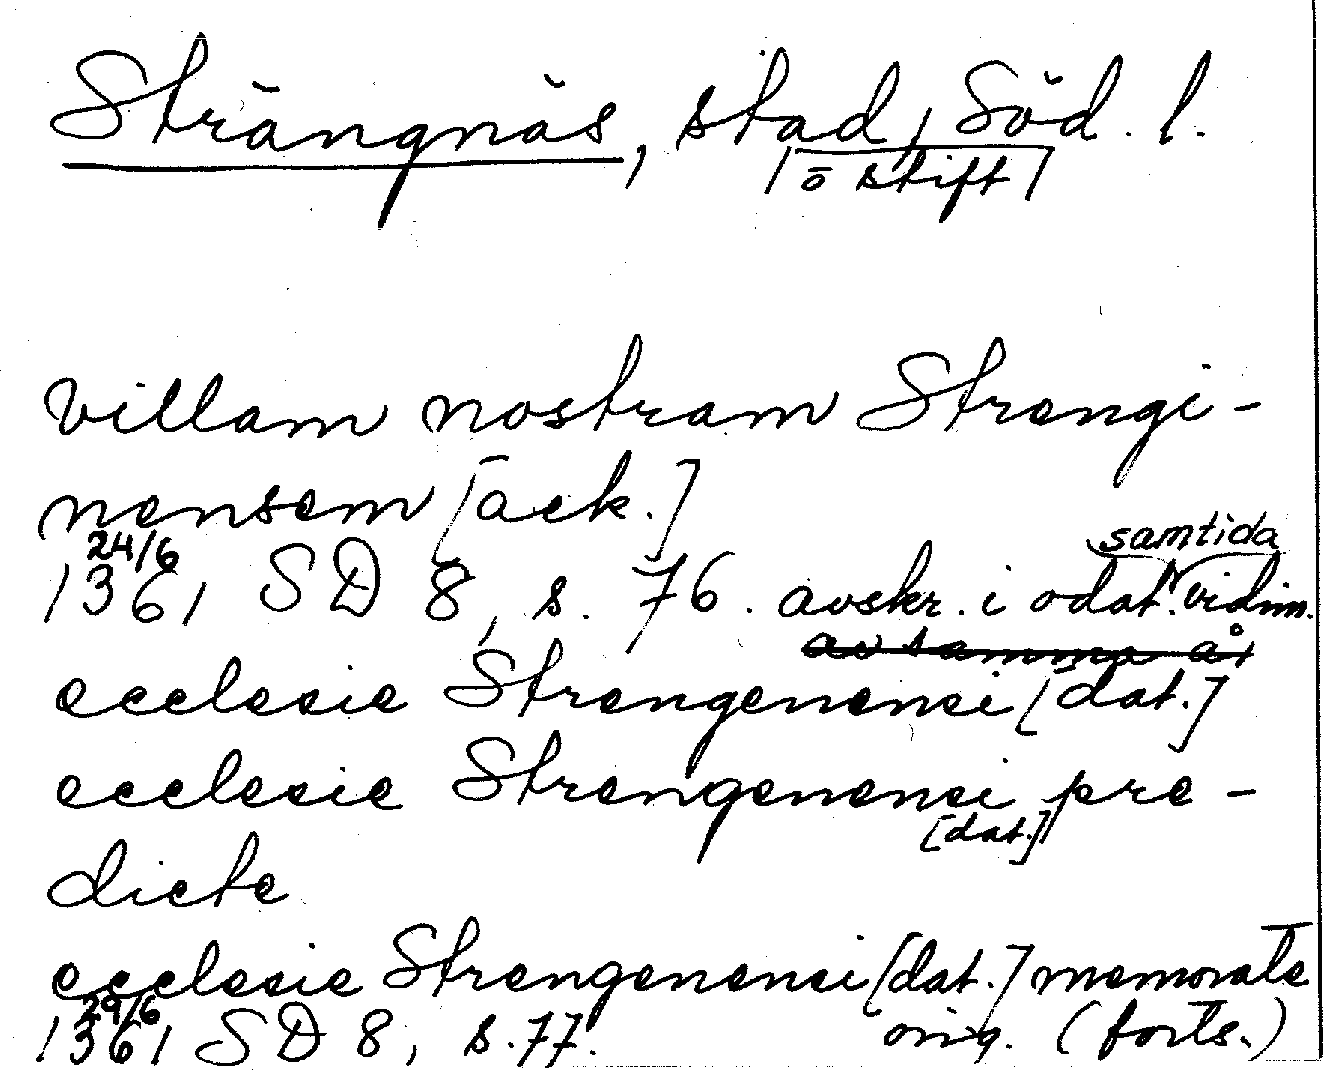 Strängnäs, stad, Söd. l.
o stift
villam nostram Strengi-
nensem [ack.]
24/6 samtida
1361 SD 8, s. 76. avskr. i odat. vidim.
av samma år
ecclesie Strengenensi [dat.]
ecclesie Strengenensi pre-
[dat.]
dicte
ecclesie Strengenensi [dat.] memorate
29/6
1361 SD 8, s. 77. orig. (forts.)